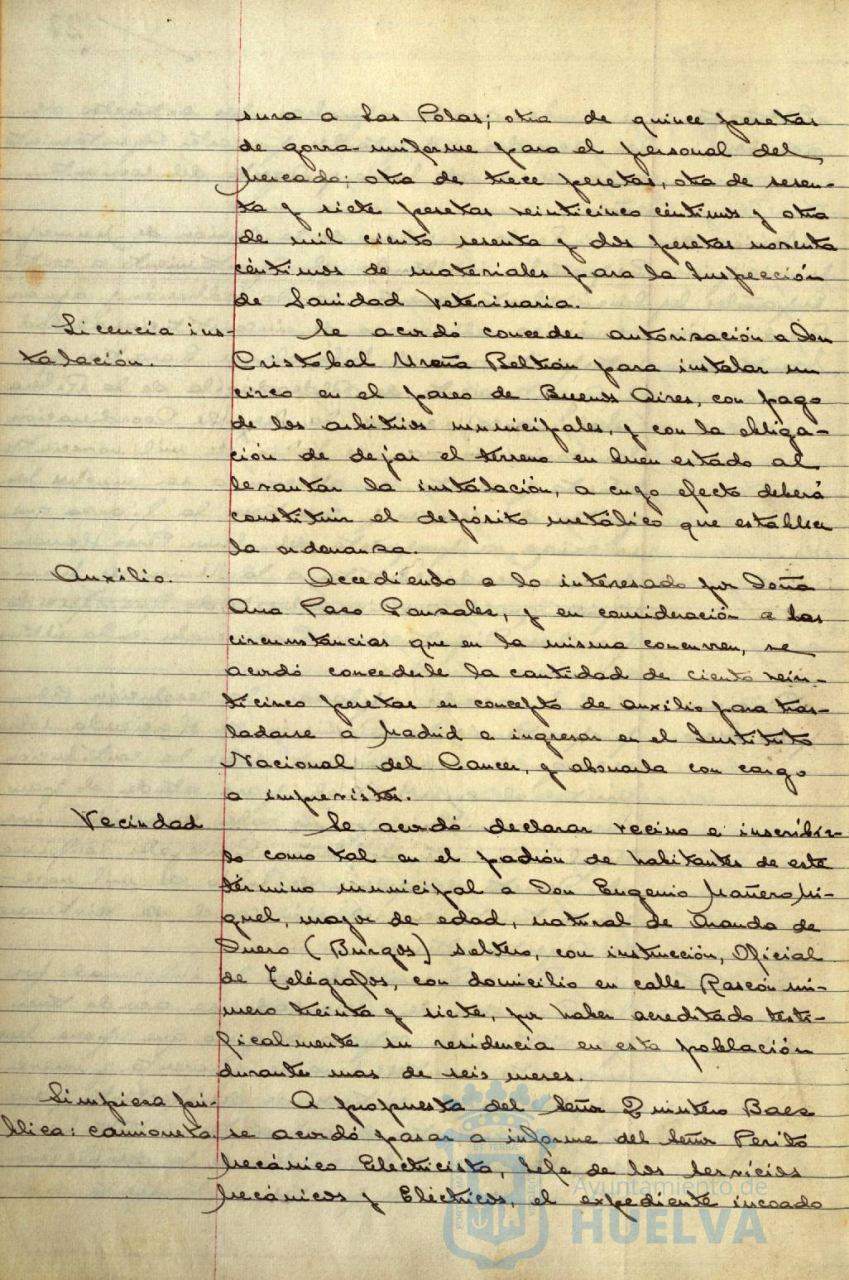 sura a Las Polas; otra de quince pesetas
de gorra-uniforme para el personal del
Mercado; otra de trece pesetas, otra de sesen-
ta y siete pesetas veinticinco céntimos y otra
de mil ciento sesenta y dos pesetas noventa
céntimos de materiales para la Inspección
de Sanidad Veterinaria.
Licencia ins-
talación.
Se acordó conceder autorización a Don
Cristobal Ureña Beltrán para instalar un
circo en el paseo de Buenos Aires, con pago
de los arbitrios municipales, y con la obliga-
ción de dejar el terreno en buen estado al
levantar la instalación, a cuyo efecto deberá
constituir el depósito metálico que establece
la ordenanza.
Auxilio.
Accediendo a lo interesado por Doña
Ana Paso Gonzalez, y en consideración a las
circunstancias que en la misma concurren, se
acordó concederle la cantidad de ciento vein-
ticinco pesetas en concepto de auxilio para tras-
ladarse a Madrid e ingresar en el Instituto
Nacional del Cancer, y abonarla con cargo
a imprevistos.
Vecindad
Se acordó declarar vecino e inscribir-
lo como tal en el padrón de habitantes de este
término municipal a Don Eugenio Mañero Mi-
guel, mayor de edad, natural de Aranda de
Duero (Burgos) soltero, con instrucción, Oficial
de Telégrafos, con domicilio en calle Rascón nú-
mero treinta y siete, por haber acreditado testi-
ficalmente su residencia en esta población
durante mas de seis meses.
Limpieza pú-
blica: camioneta.
A propuesta del Señor Quintero Baez
se acordó pasar a informe del Señor Perito
Mecánico Electricista, Jefe de los Servicios
Mecánicos y Eléctricos, el expediente incoado
Ayuntamiento de
HUELVA